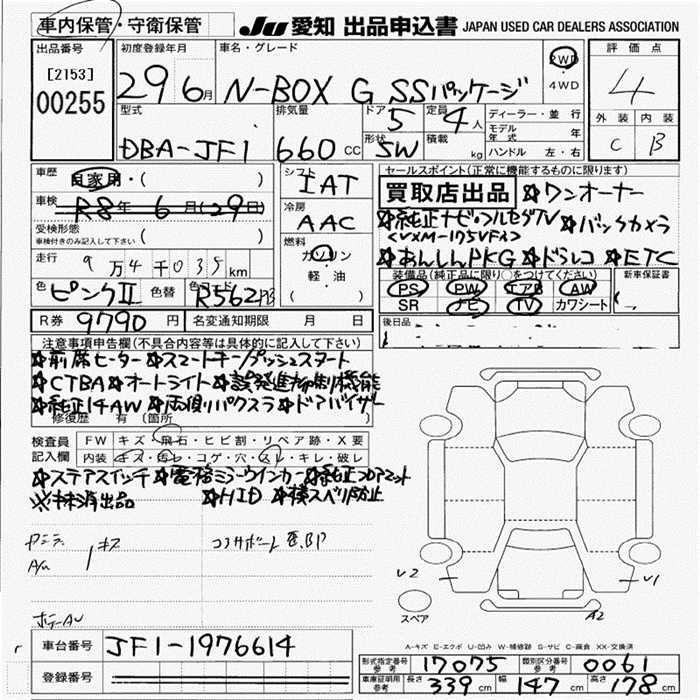 車内保管・守衛保管 JU 愛知 出品申込書 JAPAN USED CAR DEALERS ASSOCIATION
出品番号 初度登録年月 車名・グレード 評価点
[2153] 00255 29 6月 N-BOX G SSパッケージ 2WD ・4WD 4
型式 排気量 ドア 定員 ディーラー・並行 外装 内装
DBA-JF1 660 CC 5 4人 モデル年式 年 C B
形状 SW 積載 kg ハンドル 左・右
車歴 自家用・( ) シフト IAT セールスポイント(正常に機能するものに限ります)
車検 R8年 6月(29日) 冷房 AAC 買取店出品 ☆ワンオーナー
受検形態 車検付きのみ記入して下さい ( ) ☆純正ナビ・フルセグTV ☆バックカメラ
燃料 ガソリン 軽・油 <VXM-175VFi>
走行 9万4千035km ☆あんしんPKG ☆ドラレコ ☆ETC
色 ピンクII 色替 カラーコード R562 装備品(純正品に限り○をつけてください) 新車保証書
PS PW エアB AW
R券 9790円 名変通知期限 月 日 SR ナビ TV カワシート
注意事項申告欄(不具合内容等は具体的に記入して下さい) 後日品
☆前席ヒーター ☆スマートキー/プッシュスタート
☆CTBA ☆オートライト
☆純正14AW ☆両側パワスラ ☆ドアバイザー
修復歴 有 (箇所 )
検査員記入欄 FW キズ・飛石・ヒビ割・リペア跡・X要
内装 キズ・汚レ・コゲ・穴・スレ・キレ・破レ
☆ステアスイッチ ☆電格ミラーウインカー ☆純正フロアマット
※抹消出品 ☆HID ☆横スベリ防止
キズ
V2 V1
スペア A2
車台番号 JF1-1976614 A-キズ E-エクボ U-凹み W-補修跡 S-サビ C-腐食 XX-交換済
登録番号 形式指定番号 参考 17075 類別区分番号 参考 0061
車庫証明用 参考 長さ 339cm 幅 147cm 高さ 178cm